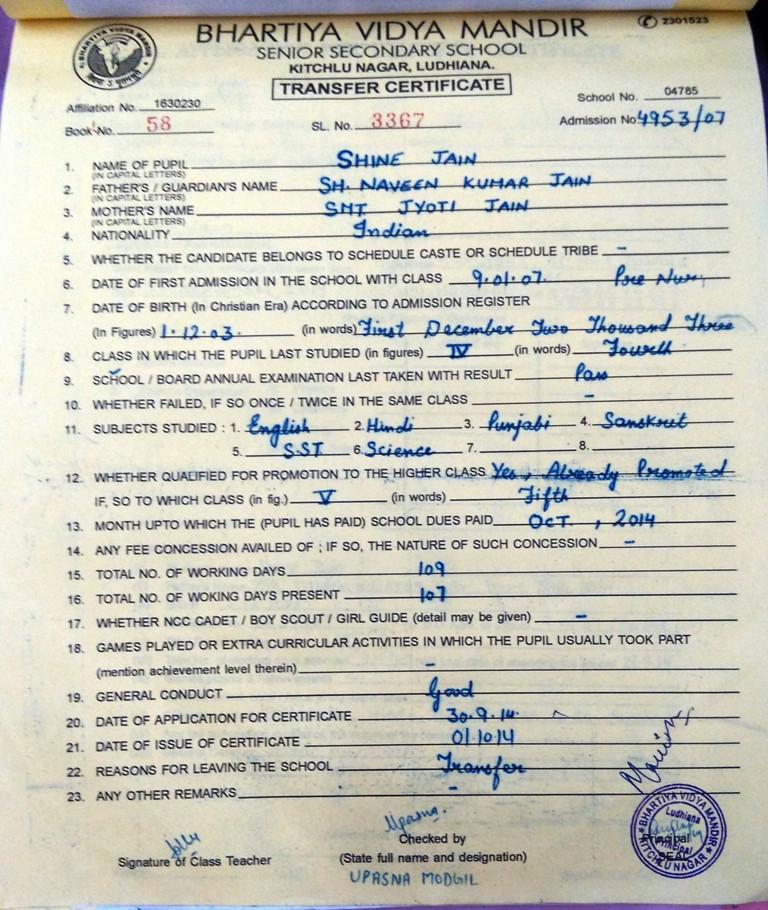 BHARTIYA VIDYA MANDIR
2301523
SENIOR SECONDARY SCHOOL
KITCHLU NAGAR, LUDHIANA.
TRANSFER CERTIFICATE
Affiliation No. 1630230 School No. 04785
Book No. 58 SL. No. 3367 Admission No 4953/07
1. NAME OF PUPIL SHINE JAIN
(IN CAPITAL LETTERS)
2. FATHER'S / GUARDIAN'S NAME SH. NAVEEN KUMAR JAIN
(IN CAPITAL LETTERS)
3. MOTHER'S NAME SMT JYOTI JAIN
(IN CAPITAL LETTERS)
4. NATIONALITY Indian
5. WHETHER THE CANDIDATE BELONGS TO SCHEDULE CASTE OR SCHEDULE TRIBE -
6. DATE OF FIRST ADMISSION IN THE SCHOOL WITH CLASS 9.01.07. Pre Nur,
7. DATE OF BIRTH (In Christian Era) ACCORDING TO ADMISSION REGISTER
(In Figures) 1.12.03. (in words) First December Two Thousand Three
8. CLASS IN WHICH THE PUPIL LAST STUDIED (in figures) IV (in words) Fourth
9. SCHOOL / BOARD ANNUAL EXAMINATION LAST TAKEN WITH RESULT Pass
10. WHETHER FAILED, IF SO ONCE / TWICE IN THE SAME CLASS -
11. SUBJECTS STUDIED : 1. English 2. Hindi 3. Punjabi 4. Sanskrit
5. S.ST 6. Science 7. 8.
12. WHETHER QUALIFIED FOR PROMOTION TO THE HIGHER CLASS Yes, Already Promoted
IF, SO TO WHICH CLASS (in fig.) V (in words) Fifth
13. MONTH UPTO WHICH THE (PUPIL HAS PAID) SCHOOL DUES PAID OCT. , 2014
14. ANY FEE CONCESSION AVAILED OF ; IF SO, THE NATURE OF SUCH CONCESSION -
15. TOTAL NO. OF WORKING DAYS 109
16. TOTAL NO. OF WOKING DAYS PRESENT 107
17. WHETHER NCC CADET / BOY SCOUT / GIRL GUIDE (detail may be given) -
18. GAMES PLAYED OR EXTRA CURRICULAR ACTIVITIES IN WHICH THE PUPIL USUALLY TOOK PART
(mention achievement level therein) -
19. GENERAL CONDUCT Good
20. DATE OF APPLICATION FOR CERTIFICATE 30.9.14.
21. DATE OF ISSUE OF CERTIFICATE 01.10.14
22. REASONS FOR LEAVING THE SCHOOL Transfer
23. ANY OTHER REMARKS -
BHARTIYA VIDYA MANDIR
Ludhiana
Principal
SEAL
KITCHLU NAGAR
Upasna.
Signature of Class Teacher
Checked by
(State full name and designation)
UPASNA MODGIL